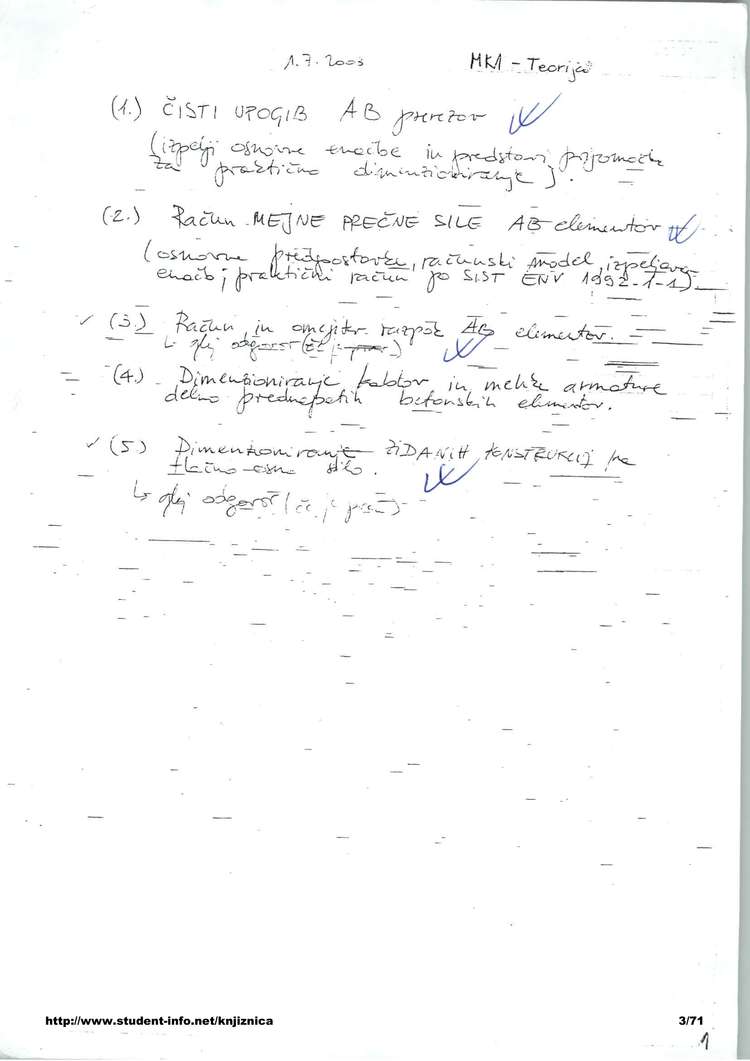 1.7.2003 MK1 - Teorija
(1.) ČISTI UPOGIB AB prerezov
(izpelji osnovne enačbe in predstavi pripomočke
za praktično dimenzioniranje).
(2.) Račun MEJNE PREČNE SILE AB elementov
(osnovne predpostavke, računski model, izpeljava
enačb; praktični račun po SIST ENV 1992-1-1).
(3.) Račun in omejitev razpok AB elementov.
↳ glej odgovor (če je prav)
(4.) Dimenzioniranje kablov in mehke armature
delno prednapetih betonskih elementov.
(5.) Dimenzioniranje ZIDANIH KONSTRUKCIJ na
tlačno osno silo.
↳ glej odgovor (če je prav)
http://www.student-info.net/knjiznica 3/71
1